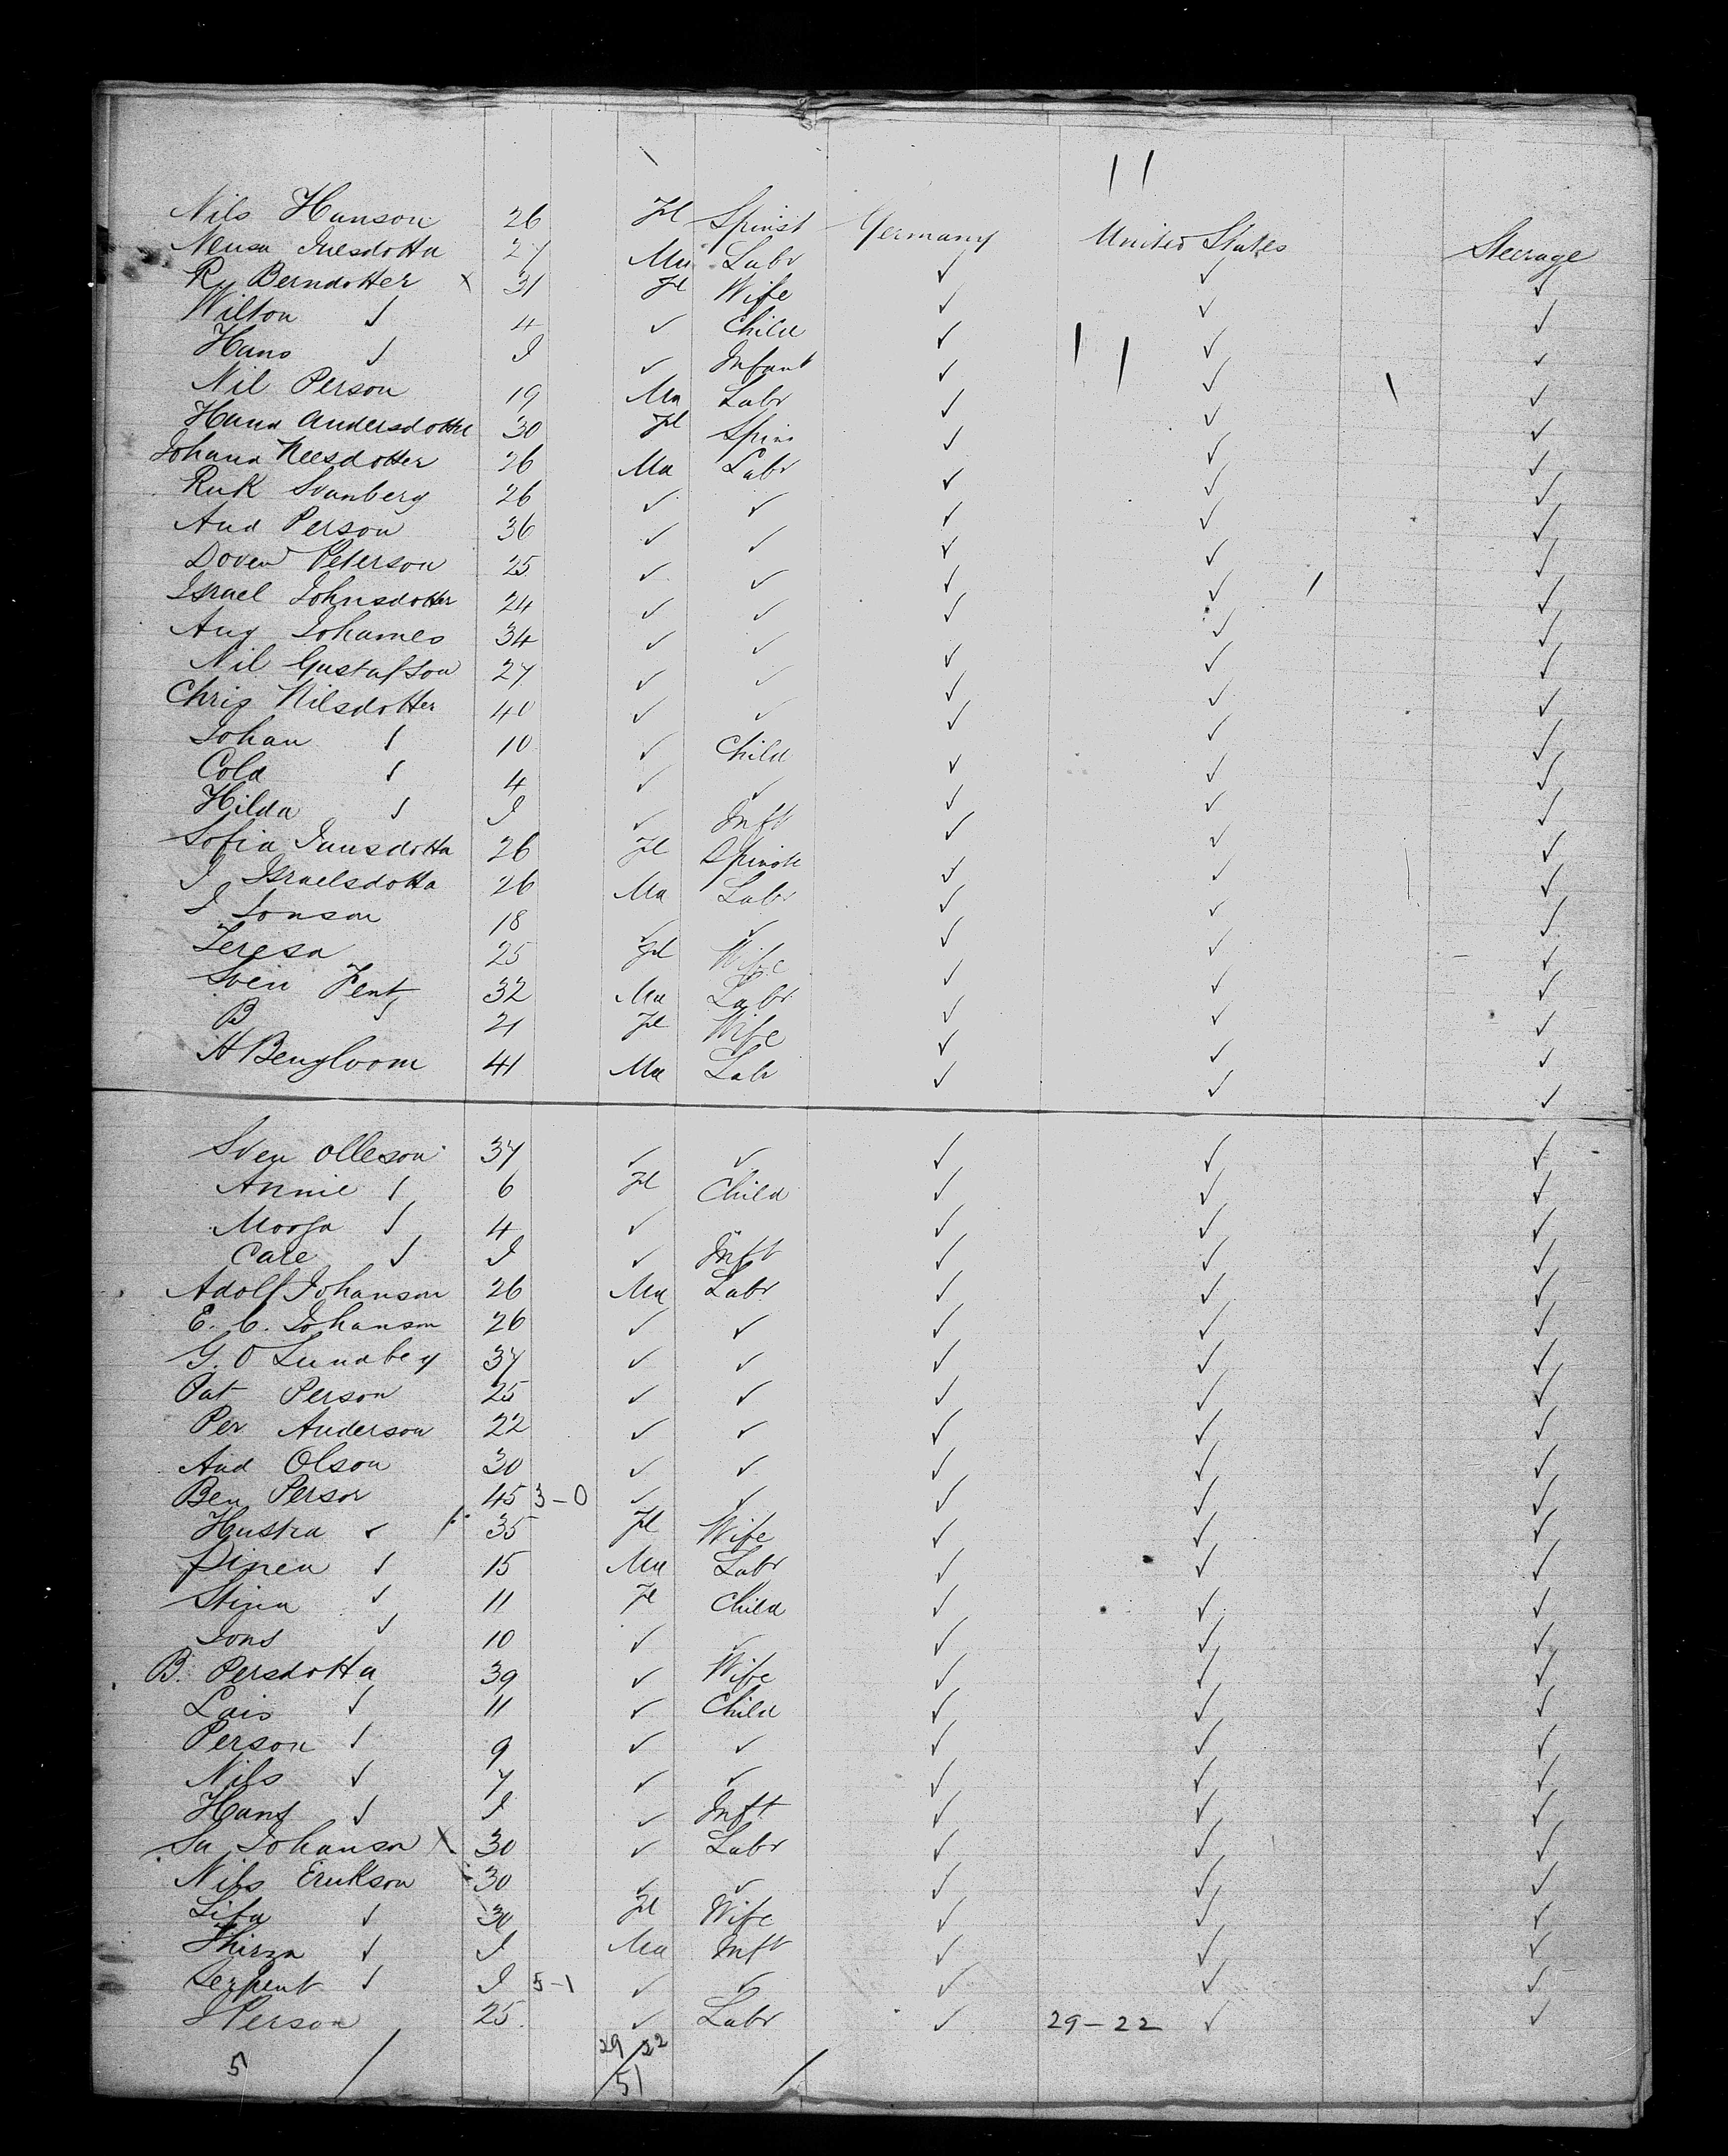 11
Nils Hanson 26 Fl Spinst Germany United States Steerage
Nensa Inesdotta 27 Ma Labr ✓ ✓ ✓
Ry Berndotter x 31 Fl Wife ✓ ✓ ✓
Wilton ✓ 4 ✓ Child ✓ ✓ ✓
Hans ✓ I ✓ Infant ✓ ✓ ✓
Nil Person 19 Ma Labr ✓ ✓ ✓
Hana Andersdotter 30 Fl Spins ✓ ✓ ✓
Johana Neesdotter 26 Ma Labr ✓ ✓ ✓
Ruk Svanberg 26 ✓ ✓ ✓ ✓ ✓
And Person 36 ✓ ✓ ✓ ✓ ✓
Doven Peterson 25 ✓ ✓ ✓ ✓ ✓
Israel Johnsdotter 24 ✓ ✓ ✓ ✓ ✓
Aug Johames 34 ✓ ✓ ✓ ✓ ✓
Nil Gustafson 27 ✓ ✓ ✓ ✓ ✓
Chris Nilsdotter 40 ✓ ✓ ✓ ✓ ✓
Johan ✓ 10 ✓ Child ✓ ✓ ✓
Cold ✓ 4 ✓ ✓ ✓ ✓ ✓
Hilda ✓ I ✓ Inft ✓ ✓ ✓
Sofia Junsdotta 26 Fl Spinste ✓ ✓ ✓
I Israelsdotta 26 Ma Labr ✓ ✓ ✓
I Jonson 18 ✓ ✓ ✓ ✓ ✓
Teresa 25 Fl Wife ✓ ✓ ✓
Sven Fent 32 Ma Labr ✓ ✓ ✓
B ✓ 21 Fl Wife ✓ ✓ ✓
H Bengloom 41 Ma Labr ✓ ✓ ✓
Sven Olleson 37 ✓ ✓ ✓ ✓ ✓
Annie ✓ 6 Fl Child ✓ ✓ ✓
✓ 4 ✓ ✓ ✓ ✓
Care ✓ I ✓ Inft ✓ ✓ ✓
Adolf Johanson 26 Ma Labr ✓ ✓ ✓
E. C. Johanson 26 ✓ ✓ ✓ ✓ ✓
G. O Lundbey 37 ✓ ✓ ✓ ✓ ✓
Pat Person 25 ✓ ✓ ✓ ✓ ✓
Per Anderson 22 ✓ ✓ ✓ ✓ ✓
And Olson 30 ✓ ✓ ✓ ✓ ✓
Ben Person 45 3-0 ✓ ✓ ✓ ✓ ✓
Hustra ✓ 35 Fl Wife ✓ ✓ ✓
Pinea ✓ 15 Ma Labr ✓ ✓ ✓
Stina ✓ 11 Fl Child ✓ ✓ ✓
Jons ✓ 10 ✓ ✓ ✓ ✓ ✓
B. Persdotta 39 ✓ Wife ✓ ✓ ✓
Lais ✓ 11 ✓ Child ✓ ✓ ✓
Person ✓ 9 ✓ ✓ ✓ ✓ ✓
Nils ✓ 7 ✓ ✓ ✓ ✓ ✓
Hans ✓ I ✓ Inft ✓ ✓ ✓
Sa Johanson X 30 ✓ Labr ✓ ✓ ✓
Nils Erikson 30 ✓ ✓ ✓ ✓ ✓
Lifa ✓ 30 Fl Wife ✓ ✓ ✓
Thirza ✓ I Ma Inft ✓ ✓ ✓
Serpent ✓ I 5-1 ✓ ✓ ✓ ✓ ✓
Person 25 ✓ Labr ✓ 29-22 ✓ ✓
29/22
5 / 51 /